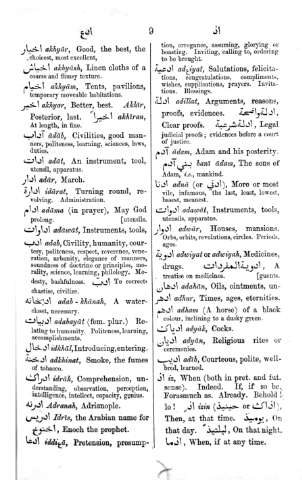 ادع
9
اد
اخيار akhyār, Good, the best, the
choicest, most excellent,
akhyāsh, Linen cloths of a
coarse and flimsy texture.
اخيام akhyām, Tents, pavilions,
temporary moveable habitations.
اخير akhyar, Better, best. Akhīr,
Posterior, last. akhiran,
At length, in fine.
اداب ādāb, Civilities, good man-
ners, politeness, learning, sciences, laws,
duties.
ادات adāt, An instrument, tool,
utensil, apparatus.
ادار adār, March.
ادارة idārat, Turning round, re-
volving. Administration.
ادام adāma (in prayer), May God
prolong. [utensils.
ادوات adawāt, Instruments, tools,
ادب adab, Civility, humanity, cour-
tesy, politeness, respect, reverence, vene-
ration, urbanity, elegance of manners,
soundness of doctrine or principles, mo-
rality, science, learning, philology. Mo-
desty, bashfulness. To correct
chastise, civilize.
ادبخانه adab-khānah, A water-
closet, necessary.
ادبيات adabiyāt (fem. plur.) Re-
lating to humanity Politeness, learning,
accomplishments.
ادخال idkhāl, Introducing, entering.
ادخنه adkhinat, Smoke, the fumes
of tobacco.
ادراك idrāk, Comprehension, un-
derstanding, observation, perception,
intelligence, intellect, capacity, genius.
ادرنه Adranah, Adrimople.
ادريس Idrīs, the Arabian name for
Enoch the prophet.
ادعا iddiʿā, Pretension, presump-
tion, arrogance, assuming, glorying or
boasting. Inviting, calling to, ordering
to be brought.
ادعية adʿiyat, Salutations, felicita-
tions, congratulations, compliments,
wishes, supplications, prayers. Invita-
tions. Blessings.
ادله adillat, Arguments, reasons,
proofs, evidences.
Clear proofs. Legal
judicial proofs; evidences before a court
of justice.
ادم ādam, Adam and his posterity.
بني ادم banī ādam, The sons of
Adam, i.e., mankind.
ادنا adnā (or ادنى), More or most
vile, infamous, the last, least, lowest,
basest, meanest.
ادوات adawāt, Instruments, tools,
utensils, apparatus.
ادوار adwār, Houses, mansions.
Orbs, orbits, revolutions, circles. Periods,
ages.
ادويه adwiyat or adwiyah, Medicines,
drugs. A
treatise on medicines. [guents.
ادهان adahān, Oils, ointments, un-
ادهر adhur, Times, ages, eternities.
ادهم adham (A horse) of a black
colour, inclining to a dusky green.
adyāk, Cocks.
اديان adyān, Religious rites or
ceremonies.
اديب adīb, Courteous, polite, well-
bred, learned.
اذ iz, When (both in pret. and fut.
sense). Indeed. If, if so be,
Forasmuch as. Already. Behold!
lo!
Then, at that time. On
that day. On that night.
When, if at any time.